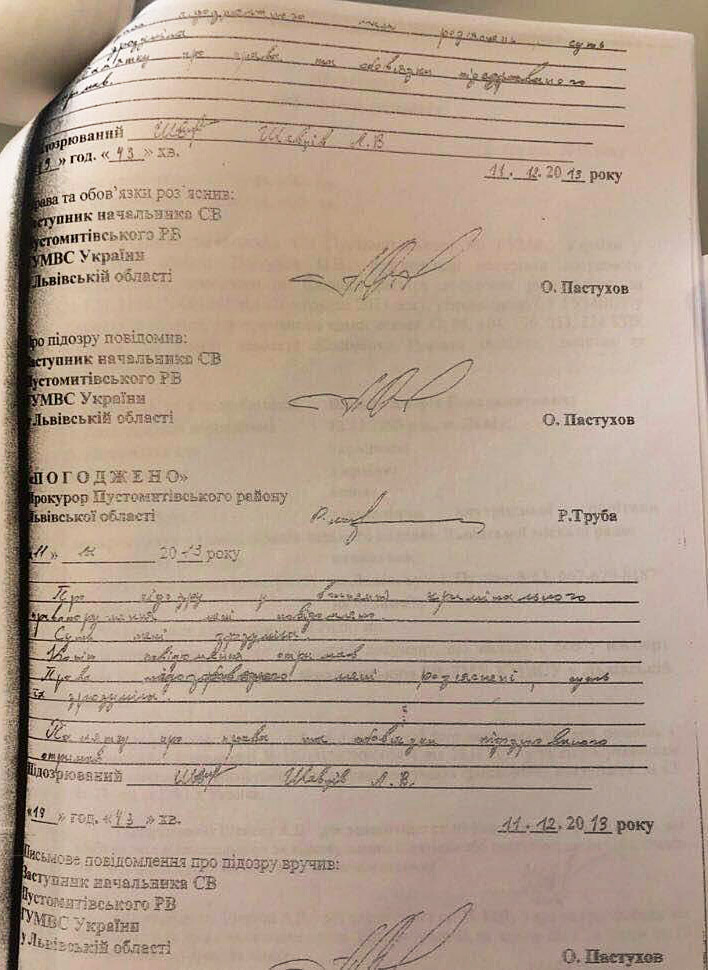 підозрюваного мені роз'яснені, суть
зрозуміла
Пам'ятку про права та обов'язки підозрюваного
отримав.
Підозрюваний Шевців А.В
«19» год. «43» хв.
11. 12. 2013 року
Права та обов’язки роз’яснив:
Заступник начальника СВ
Пустомитівського РВ
ГУМВС України
у Львівській області
О. Пастухов
Про підозру повідомив:
Заступник начальника СВ
Пустомитівського РВ
ГУМВС України
у Львівській області
О. Пастухов
«ПОГОДЖЕНО»
Прокурор Пустомитівського району
Львівської області
Р.Труба
«11» 12 2013 року
Про підозру у вчиненні кримінального
правопорушення мені повідомлено.
Суть мені зрозуміла.
Копію повідомлення отримав
Права підозрюваного мені роз'яснені, суть
їх зрозуміла.
Пам'ятку про права та обов'язки підозрюваного
отримав
Підозрюваний Шевців А.В.
«19» год. «43» хв.
11. 12. 2013 року
Письмове повідомлення про підозру вручив:
Заступник начальника СВ
Пустомитівського РВ
ГУМВС України
у Львівській області
О. Пастухов